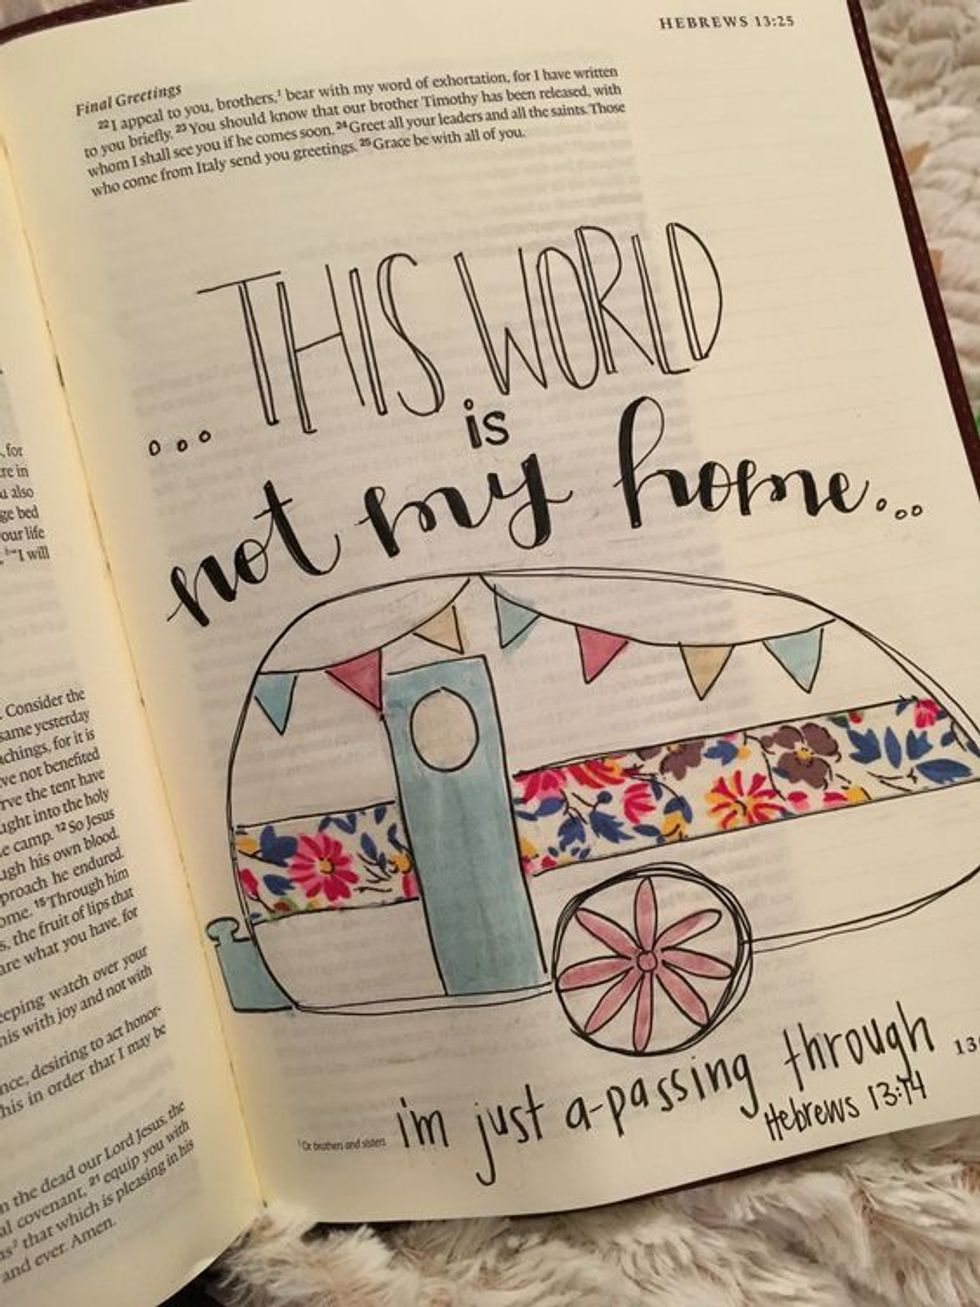 , for
re in
u also
ge bed
our life
“I will
. Consider the
same yesterday
achings, for it is
ve not benefited
rve the tent have
ught into the holy
e camp. 12 So Jesus
ugh his own blood.
proach he endured.
ome. 15 Through him
s, the fruit of lips that
are what you have, for
eeping watch over your
his with joy and not with
nce, desiring to act honor-
his in order that I may be
n the dead our Lord Jesus, the
al covenant, 21 equip you with
us 2 that which is pleasing in his
and ever. Amen.
HEBREWS 13:25
Final Greetings
22 I appeal to you, brothers,1 bear with my word of exhortation, for I have written
to you briefly. 23 You should know that our brother Timothy has been released, with
whom I shall see you if he comes soon. 24 Greet all your leaders and all the saints. Those
who come from Italy send you greetings. 25 Grace be with all of you.
...THIS WORLD
is
not my home...
i'm just a-passing through
Hebrews 13:14
1 Or brothers and sisters